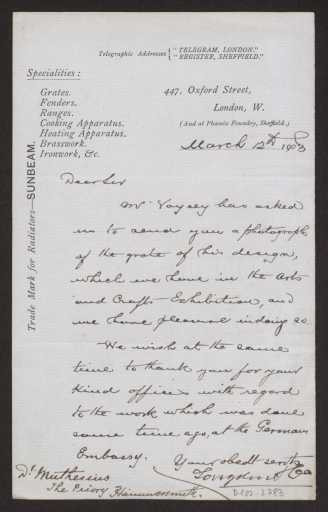 Telegraphic Addresses { "TELEGRAM, LONDON."
"REGISTER, SHEFFIELD."
Specialities:
Grates.
Fenders.
Ranges.
Cooking Apparatus.
Heating Apparatus.
Brasswork.
Ironwork, &c.
447, Oxford Street,
London, W.
(And at Phoenix Foundry, Sheffield.)
Trade Mark for Radiators—SUNBEAM.
March 12th 1903
Dear Sir
Mr Voysey has asked
us to send you a photograph
of the grate of his design,
which we have in the Arts
and Crafts Exhibition, and
we have pleasure in doing so.
We wish at the same
time to thank you for your
kind offices with regard
to the work which was done
some time ago, at the German
Embassy. Your obedt servts
Longden & Co
Dr Muthesius
The Priory Hammersmith.